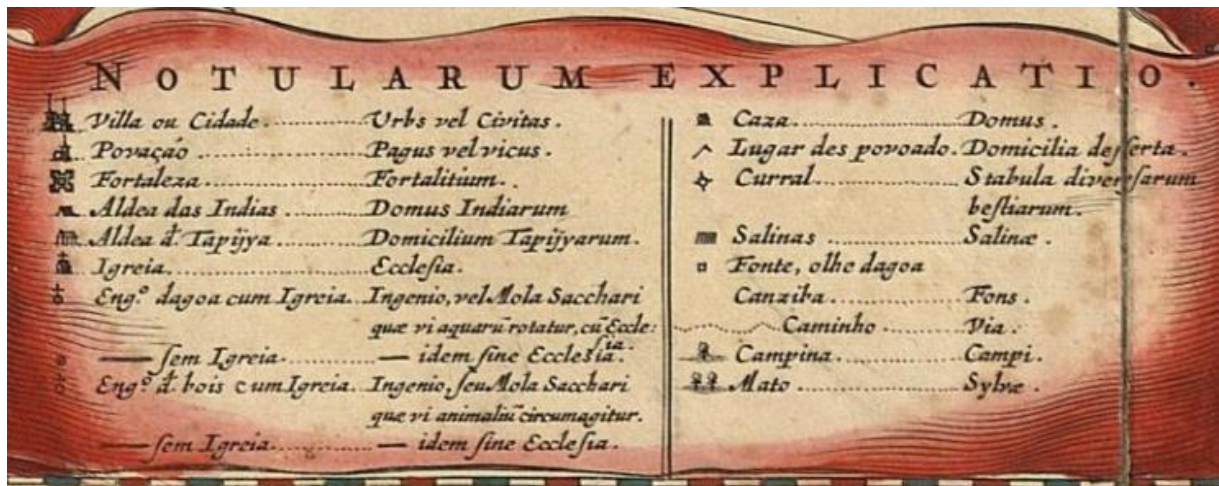 NOTULARUM EXPLICATIO.
Villa ou Cidade............Urbs vel Civitas.
Povaçaõ............Pagus vel vicus.
Fortaleza............Fortalitium.
Aldea das Indias............Domus Indiarum
Aldea d. Tapijya............Domicilium Tapijyarum.
Igreia............Ecclesia.
Eng.º dagoa cum Igreia. Ingenio, vel Mola Sacchari
quæ vi aquarū rotatur, cū Eccle:
sia.
— sem Igreia............— idem sine Ecclesia.
Eng.º d. bois cum Igreia. Ingenio, seu Mola Sacchari
quæ vi animaliū circumagitur.
— sem Igreia............— idem sine Ecclesia.
Caza............Domus.
Lugar des povoado. Domicilia deserta.
Curral............Stabula diversarum
bestiarum.
Salinas............Salinæ.
Fonte, olho dagoa
Canziba............Fons.
Caminho............Via.
Campina............Campi.
Mato............Sylvæ.